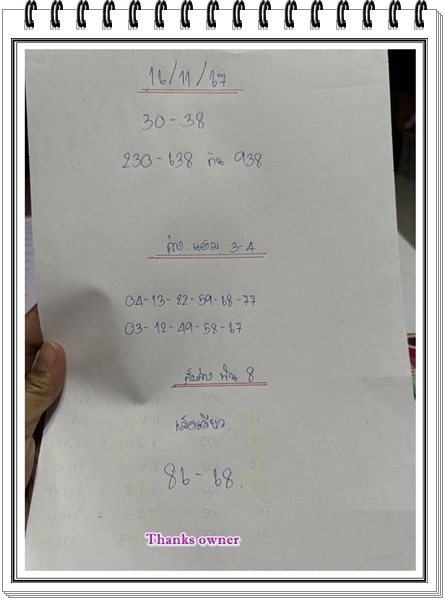 16/11/67
30-38
230-638 กับ 938
ล่าง แต้ม 3-4
04-13-22-59-68-77
03-12-49-58-67
สิบล่าง ฟัน 8
เม็ดเดียว.
86-68.
Thanks owner